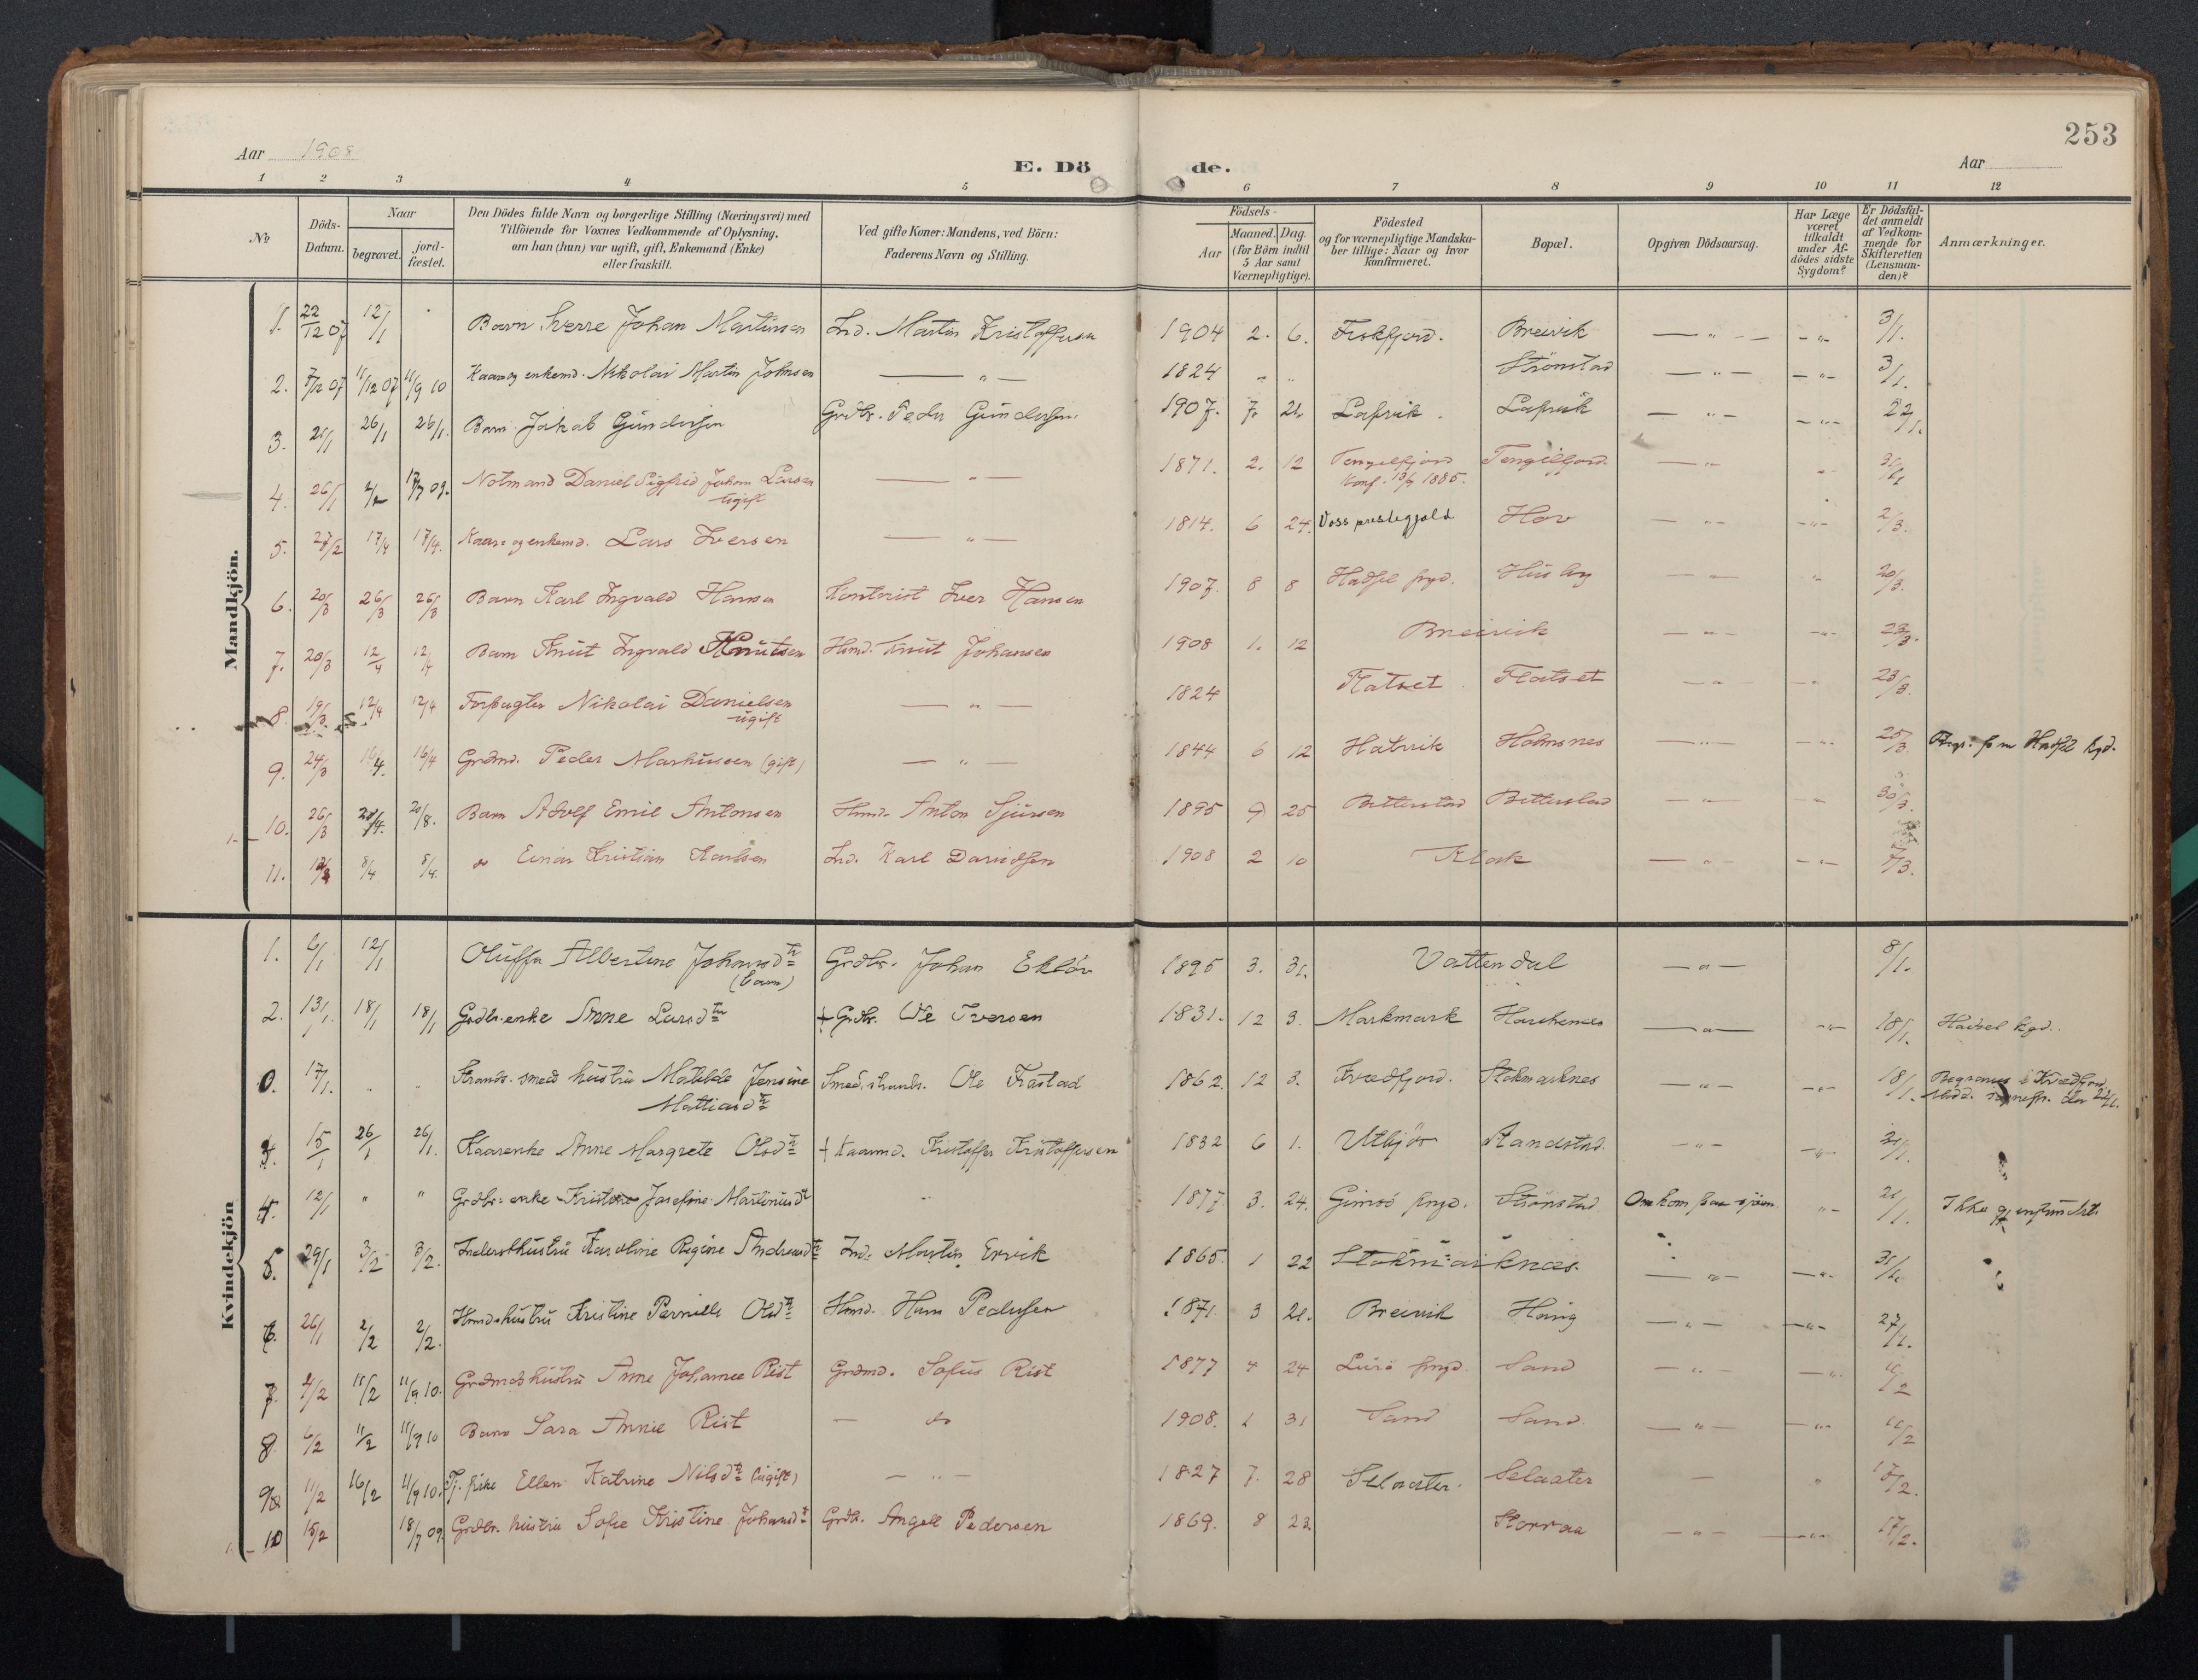 253
Aar 1908 E. Dö de. Aar
1 2 3 4 5 6 7 8 9 10 11 12
№
Döds-Datum.
Naar
begravet.
jord-fæstet.
Den Dödes fulde Navn og borgerlige Stilling (Næringsvei) med
Tilföiende for Voxnes Vedkommende af Oplysning,
om han (hun) var ugift, gift, Enkemand (Enke)
eller fraskilt.
Ved gifte Koner: Mandens, ved Börn:
Faderens Navn og Stilling.
Födsels-
Aar
Maaned. Dag.
(for Börn indtil
5 Aar samt
Værnepligtige).
Födested
og for værnepligtige Mandska-
ber tillige: Naar og hvor
konfirmeret.
Bopæl.
Opgiven Dödsaarsag.
Har Læge
været
tilkaldt
under Af-
dödes sidste
Sygdom?
Er Dödsfal-
det anmeldt
af Vedkom-
mende for
Skifteretten
(Lensman-
den)?
Anmærkninger.
Mandkjön.
1. 22/12 07 12/1 Barn Sverre Johan Martinsen Ind. Martin Kristoffersen 1904 2. 6. Fiskfjord. Breivik — " — - " - 3/1.
2. 7/12 07 11/12 07 11/9 10 Kaarog enkemd. Nikolai Martin Johnsen — " — 1824 " " Strönstad — " — — " - 3/1.
3. 21/1 26/1 26/1. Barn Jakob Gundersen Grdbr. Peder Gundersen 1907. 7. 21. — " — - " - 22/1.
4. 26/1 2/2 Notmand Daniel Sigfrid Johan Larsen
ugift — " — 1871. 2. 12 Tengelfjord Tengelfjord. — " " 31/1
Konf. 13/9 1885.
5. 27/2 17/4 17/4. Kaar- og enkemd. Lars Iversen — " — 1814. 6 24. Voss prestegjeld Hov — " - - " - 2/3.
6. 20/3 26/3 26/3 Barn Karl Ingvald Hansen Kontorist Iver Hansen 1907. 8 8 Hadsel prgd. Husby — " — " 20/3.
7. 20/3 12/4 12/4 Barn Knut Ingvald Knutsen Hmd. Knut Johansen 1908 1. 12 Breivik — " — - " - 23/3.
8. 19/3 12/4 12/4 Forpagter Nikolai Danielsen
ugift — " — 1824 Flatset Flatset — " — — " 23/3.
9. 24/3 16/4. 16/4 Grdmd. Peder Markussen (gift) — " — 1844 6 12 Hatvik Holmsnes — " — — " - 25/3. Hadsel kgd.
10. 26/3 20/4. 20/8. Barn Adolf Emil Antonsen Hmd. Anton Sjursen 1895 9 25 Bitterstad Bitterstad — " — — " 30/3.
11. 8/4 8/4. do Einar Kristian Karlsen Ind. Karl Davidsen 1908 2 10 Klok — " — - " - 7/3.
Kvindekjön
1. 6/1 12/1 Oluffa Albertine Johansdtr
(barn) Grdbr. Johan Eklöv 1895 3. 31. Vattendal — " — 8/1.
2. 13/1. 18/1 18/1 Grdbr. enke Anne Larsdtr + Grdbr. Ole Iversen 1831. 12 3. Markmark — " — - " - 18/1. Hadsel kgd.
0. 17/1. " " Strands. smed hustru Matilde Jensine
Mattiasdtr Smed, strands. Ole Frastad 1862. 12 3. Kvædfjord. Stokmarknes — " — - " - 18/1. Begraves i Kvædfjord
3. 15/1 26/1 26/1. Kaarenke Anne Margrete Olsdtr + Kaarmd. Kristoffer Kristoffersen 1832 6 1. Utbjör Sandstad. — " — - " - 21/1.
4. 12/1 " " Grdbr. enke Kristine Josefine Martinusdtr " 1877 3. 24. Gimsö prgd. Strönstad. Omkom paa sjöen. " - 21/1. Ikke gjenfundet.
5. 29/1 3/2 3/2. Inderst hustru Karoline Regine Andreasdtr Ind. Martin Ervik 1865. 1 22 Stokmarknæs. — " — — " - 31/1.
6. 26/1 2/2 2/2. Hmds hustru Kristine Pernille Olsdtr Hmd. Hans Pedersen 1871. 3 21. Breivik Haug — " — — " - 27/1.
7. 4/2 11/2 11/9 10. Grdmds hustru Anne Johanna Rist Grdmd. Sofus Rist 1877 4 24 Lurö prgd. Sand — " — — " 10/2
8 6/2 11/2 11/9 10 Barn Sara Annie Rist — do 1908. 1 31 Sand Sand. — " — — " - 10/2
9 11/2 16/2 11/9 10. Tj. pike Ellen Katrine Nilsdtr (ugift) — " — 1827 7. 28 Selaater. Selaater — " 18/2.
10 15/2 18/7 09. Grdbr. hustru Sofie Kristine Johansdtr Grdb. Angell Pedersen 1869. 8 23. Storraa — " — — " - 17/2.